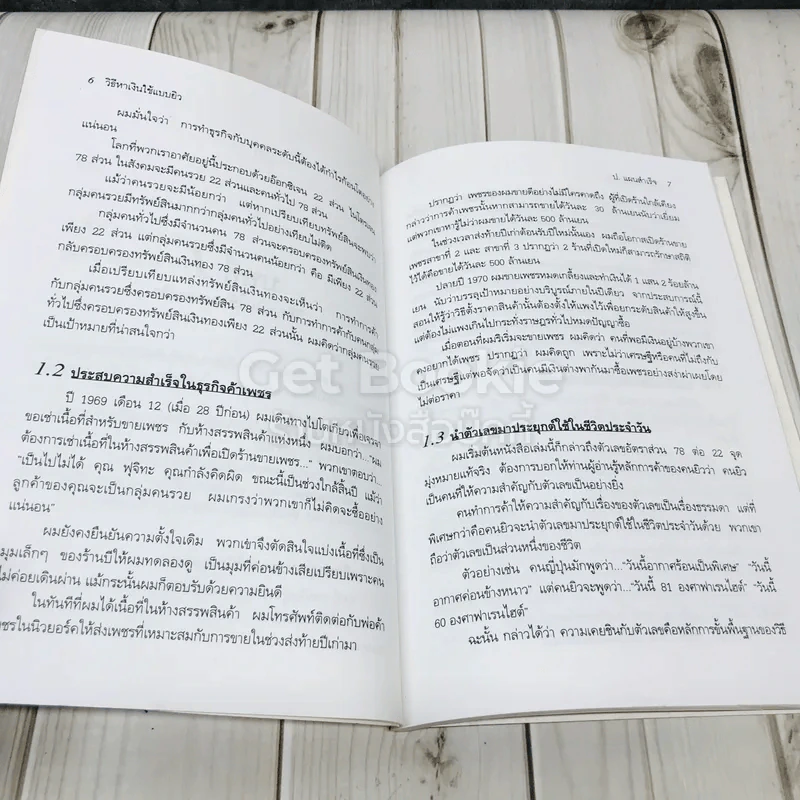 6 วิธีหาเงินใช้แบบยิว
ผมมั่นใจว่า การทำธุรกิจกับบุคคลระดับนี้ต้องได้กำไรก้อนโตอย่าง
แน่นอน
โลกที่พวกเราอาศัยอยู่นี้ประกอบด้วยอ๊อกซิเจน 22 ส่วน ไนโตรเจน
78 ส่วน ในสังคมจะมีคนรวย 22 ส่วนและคนทั่วไป 78 ส่วน
แม้ว่าคนรวยจะมีน้อยกว่า แต่หากเปรียบเทียบทรัพย์สินจะพบว่า
กลุ่มคนรวยมีทรัพย์สินมากกว่ากลุ่มคนทั่วไปอย่างเทียบไม่ติด
กลุ่มคนทั่วไปซึ่งมีจำนวนคน 78 ส่วนจะครอบครองทรัพย์สินเงินทอง
เพียง 22 ส่วน แต่กลุ่มคนรวยซึ่งมีจำนวนคนน้อยกว่า คือ มีเพียง 22 ส่วน
กลับครอบครองทรัพย์สินเงินทอง 78 ส่วน
เมื่อเปรียบเทียบแหล่งทรัพย์สินเงินทองจะเห็นว่า การทำการค้า
กับกลุ่มคนรวยซึ่งครอบครองทรัพย์สิน 78 ส่วน กับการทำการค้ากับคนกลุ่ม
ทั่วไปซึ่งครอบครองทรัพย์สินเงินทองเพียง 22 ส่วนนั้น ผมคิดว่ากลุ่มคนรวย
เป็นเป้าหมายที่น่าสนใจกว่า
1.2 ประสบความสำเร็จในธุรกิจค้าเพชร
ปี 1969 เดือน 12 (เมื่อ 28 ปีก่อน) ผมเดินทางไปโตเกียวเพื่อเสาะหา
ขอเช่าเนื้อที่สำหรับขายเพชร กับห้างสรรพสินค้าแห่งหนึ่ง ผมบอกว่า..."ผม
ต้องการเช่าเนื้อที่ในห้างสรรพสินค้าเพื่อเปิดร้านขายเพชร..." พวกเขาตอบว่า...
"เป็นไปไม่ได้ คุณ ฟุจิทะ คุณกำลังคิดผิด ขณะนี้เป็นช่วงใกล้สิ้นปี แม้ว่า
ลูกค้าของคุณจะเป็นกลุ่มคนรวย ผมเกรงว่าพวกเขาก็ไม่คิดจะซื้ออย่าง
แน่นอน"
ผมยังคงยืนยันความตั้งใจเดิม พวกเขาจึงตัดสินใจแบ่งเนื้อที่ซึ่งเป็น
มุมเล็กๆ ของร้านปีให้ผมทดลองดู เป็นมุมที่ค่อนข้างเสียเปรียบเพราะคน
ไม่ค่อยเดินผ่าน แม้กระนั้นผมก็ตอบรับด้วยความยินดี
ในทันทีที่ผมได้เนื้อที่ในห้างสรรพสินค้า ผมโทรศัพท์ติดต่อกับพ่อค้า
เพชรในนิวยอร์คให้ส่งเพชรที่เหมาะสมกับการขายในช่วงส่งท้ายปีเก่ามา
ป. แผนสำเร็จ 7
ปรากฏว่า เพชรของผมขายดีอย่างไม่มีใครคาดถึง ผู้ที่เปิดร้านใกล้เคียง
กล่าวว่าการค้าเพชรนั้นหากสามารถขายได้วันละ 30 ล้านเยนนับว่าเยี่ยม
แต่พวกเขาหารู้ไม่ว่าผมขายได้วันละ 500 ล้านเยน
ในช่วงเวลาส่งท้ายปีเก่าต้อนรับปีใหม่นั้นเอง ผมถือโอกาสเปิดร้านขาย
เพชรสาขาที่ 2 และ สาขาที่ 3 ปรากฏว่า 2 ร้านที่เปิดใหม่ก็สามารถรักษาสถิติ
ไว้ได้คือขายได้วันละ 500 ล้านเยน
ปลายปี 1970 ผมขายเพชรหมดเกลี้ยงและทำเงินได้ 1 แสน 2 ร้อยล้าน
เยน นับว่าบรรลุเป้าหมายอย่างบริบูรณ์ภายในปีเดียว จากประสบการณ์นี้
สอนให้รู้ว่าวิธีตั้งราคาสินค้านั้นต้องตั้งให้แพงไว้เพื่อยกระดับสินค้าให้สูงขึ้น
แต่ต้องไม่แพงเกินไปกระทั่งราษฎรทั่วไปหมดปัญญาซื้อ
เมื่อตอนที่ผมริเริ่มจะขายเพชร ผมคิดว่า คนที่พอมีเงินอยู่บ้างพวกเขา
คงอยากได้เพชร ปรากฏว่า ผมคิดถูก เพราะไม่ว่าเศรษฐีหรือคนที่ไม่ถึงกับ
เป็นเศรษฐีแต่พอจัดว่าเป็นคนมีเงินต่างพากันมาซื้อเพชรอย่างสง่าผ่าเผยโดย
ไม่ต่อราคา
1.3 นำตัวเลขมาประยุกต์ใช้ในชีวิตประจำวัน
ผมเริ่มต้นหนังสือเล่มนี้ก็กล่าวถึงตัวเลขอัตราส่วน 78 ต่อ 22 จุด
มุ่งหมายแท้จริง ต้องการบอกให้ท่านผู้อ่านรู้หลักการค้าของคนยิวว่า คนยิว
เป็นคนที่ให้ความสำคัญกับตัวเลขเป็นอย่างยิ่ง
คนทำการค้าให้ความสำคัญกับเรื่องของตัวเลขเป็นเรื่องธรรมดา แต่ที่
พิเศษกว่าคือคนยิวจะนำตัวเลขมาประยุกต์ใช้ในชีวิตประจำวันด้วย พวกเขา
ถือว่าตัวเลขเป็นส่วนหนึ่งของชีวิต
ตัวอย่างเช่น คนญี่ปุ่นมักพูดว่า..."วันนี้อากาศร้อนเป็นพิเศษ" "วันนี้
อากาศค่อนข้างหนาว" แต่คนยิวจะพูดว่า..."วันนี้ 81 องศาฟาเรนไฮต์" "วันนี้
60 องศาฟาเรนไฮต์"
ฉะนั้น กล่าวได้ว่า ความเคยชินกับตัวเลขคือหลักการขั้นพื้นฐานของวิธี
Get Bookie